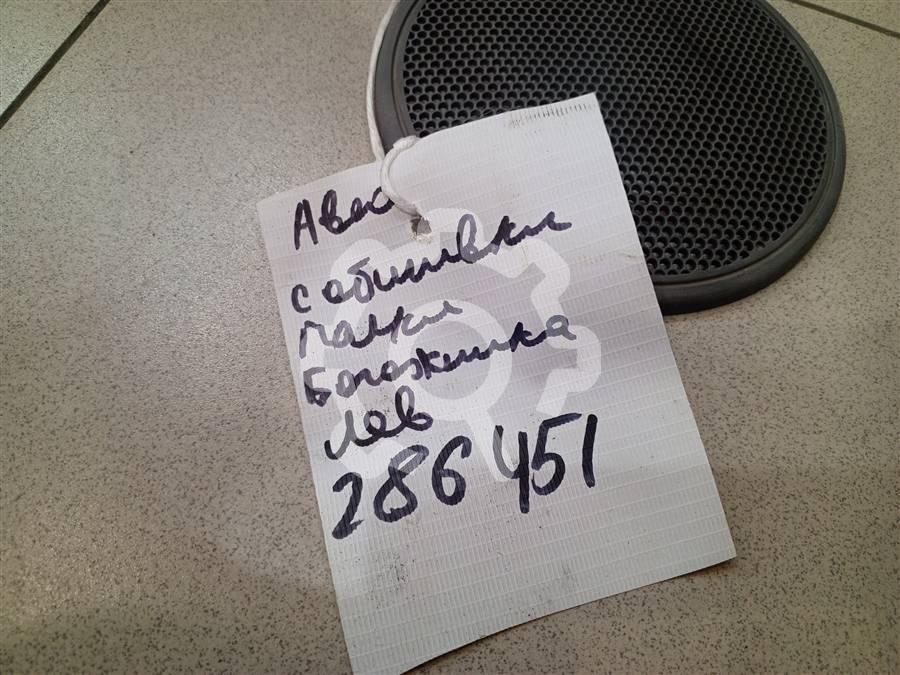 Авео
с обшивки
полки
Богожника
лев
286451